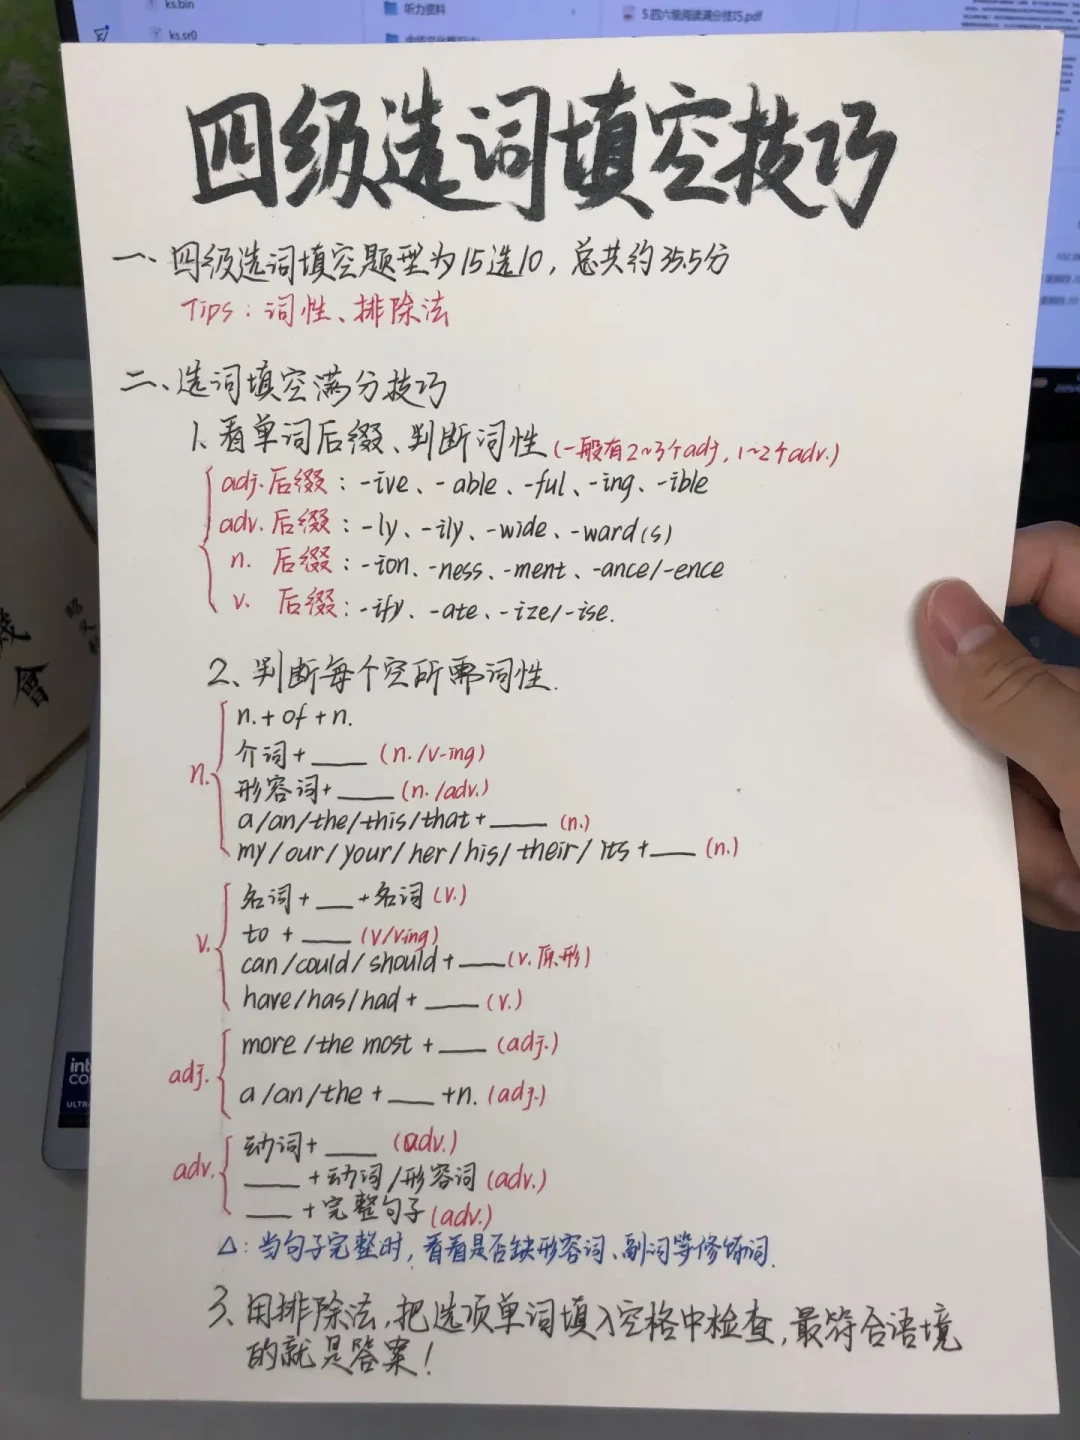 ks.bin
听力资料
5.四六级阅读满分技巧.pdf
ks.sr0
四级选词填空技巧
一、四级选词填空题型为15选10，总共约35.5分
Tips：词性、排除法
二、选词填空满分技巧
1、看单词后缀、判断词性(一般有2~3个adj，1~2个adv.)
adj.后缀：-ive、-able、-ful、-ing、-ible
adv.后缀：-ly、-ily、-wide、-ward(s)
n. 后缀：-ion、-ness、-ment、-ance/-ence
v. 后缀：-ify、-ate、-ize/-ise.
2、判断每个空所需词性.
n.
n.+of+n.
介词+____ (n./v-ing)
形容词+____ (n./adv.)
a/an/the/this/that+____ (n.)
my/our/your/her/his/their/its+____ (n.)
v.
名词+___+名词(v.)
to +____ (v/ving)
can/could/should+____(v.原形)
have/has/had+____ (v.)
adj.
more/the most+____ (adj.)
a/an/the+____+n. (adj.)
adv.
动词+____ (adv.)
____+动词/形容词(adv.)
____+完整句子(adv.)
△：当句子完整时，看看是否缺形容词、副词等修饰词.
3、用排除法，把选项单词填入空格中检查，最符合语境
的就是答案！
會
ULTR